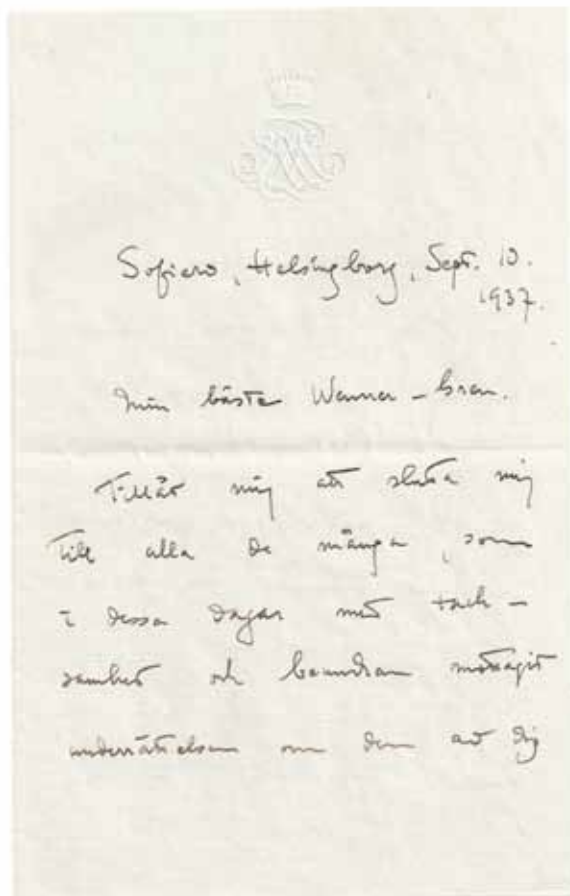 Sofiero, Helsingborg, Sept. 10.
1937.
Min bästa Wenner-Gren.
Tillåt mig att sluta mig
till alla de många, som
i dessa dagar med tack-
samhet och beundran mottagit
underrättelsen om den av dig